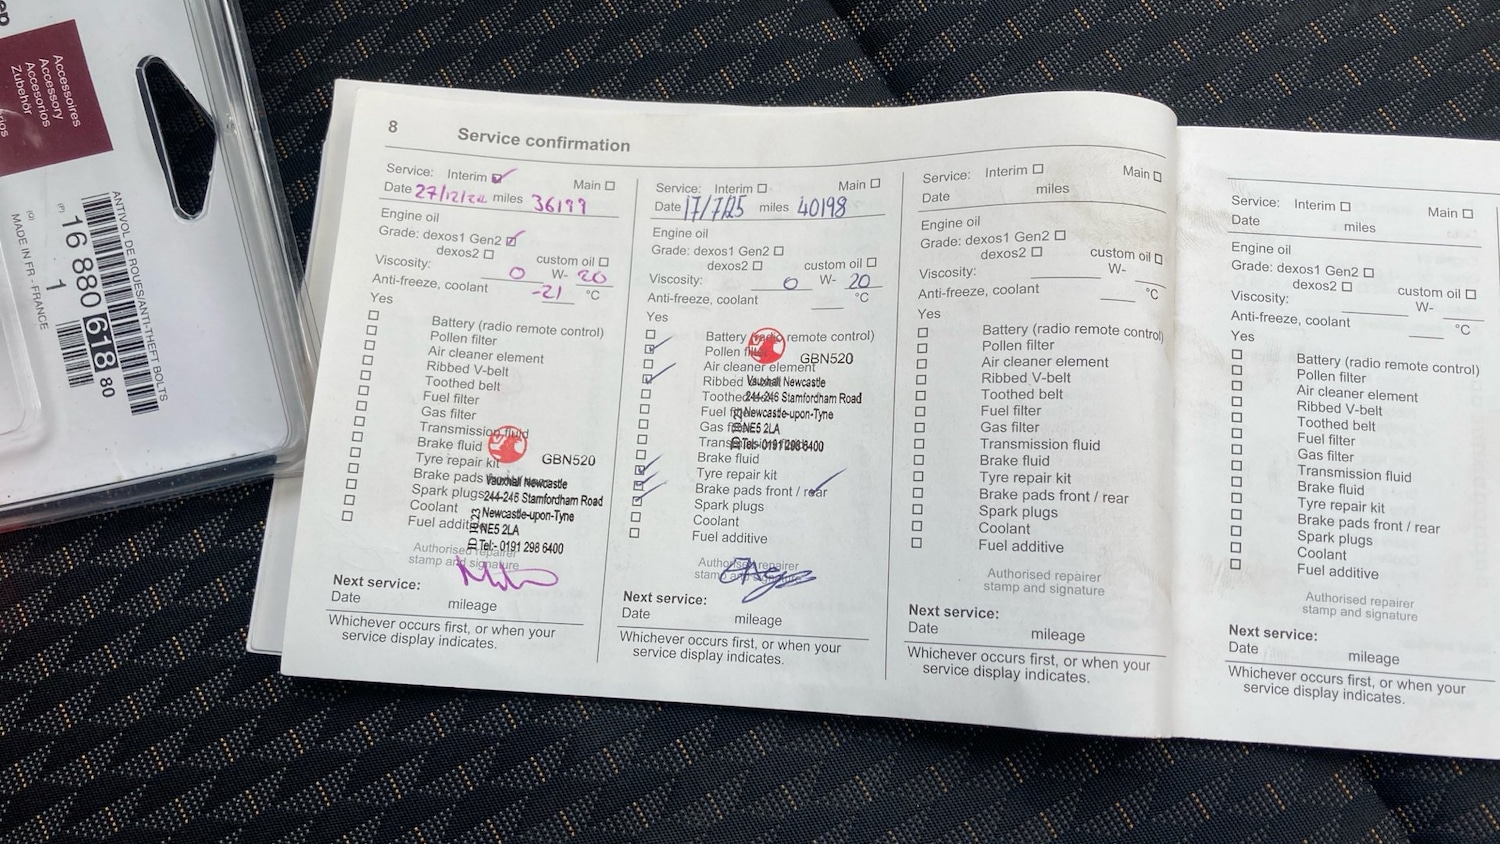 Accessoires
Accessory
Accesorios
Zubehör
ANTIVOL DE ROUES/ANTI-THEFT BOLTS
(P) 16 880 618 80
(Q) 1
MADE IN FR - FRANCE
8 Service confirmation
Service: Interim Main
Date 27/12/24 miles 36199
Engine oil
Grade: dexos1 Gen2
dexos2 custom oil
Viscosity: 0 W- 20
Anti-freeze, coolant -21 °C
Yes
Battery (radio remote control)
Pollen filter
Air cleaner element
Ribbed V-belt
Toothed belt
Fuel filter
Gas filter
Transmission fluid
Brake fluid
Tyre repair kit
Brake pads
Spark plugs
Coolant
Fuel additive
GBN520
Vauxhall Newcastle
244-246 Stamfordham Road
Newcastle-upon-Tyne
NE5 2LA
Tel:- 0191 298 6400
Authorised repairer
stamp and signature
Next service:
Date mileage
Whichever occurs first, or when your
service display indicates.
Service: Interim Main
Date 17/7/25 miles 40198
Engine oil
Grade: dexos1 Gen2
dexos2 custom oil
Viscosity: 0 W- 20
Anti-freeze, coolant °C
Yes
Battery (radio remote control)
Pollen filter
Air cleaner element
Ribbed
Toothed
Fuel
Gas
Brake fluid
Tyre repair kit
Brake pads front / rear
Spark plugs
Coolant
Fuel additive
GBN520
Vauxhall Newcastle
244-246 Stamfordham Road
Newcastle-upon-Tyne
NE5 2LA
Tel:- 0191 298 6400
Authorised repairer
stamp and signature
Next service:
Date mileage
Whichever occurs first, or when your
service display indicates.
Service: Interim Main
Date miles
Engine oil
Grade: dexos1 Gen2
dexos2 custom oil
Viscosity: W-
Anti-freeze, coolant °C
Yes
Battery (radio remote control)
Pollen filter
Air cleaner element
Ribbed V-belt
Toothed belt
Fuel filter
Gas filter
Transmission fluid
Brake fluid
Tyre repair kit
Brake pads front / rear
Spark plugs
Coolant
Fuel additive
Authorised repairer
stamp and signature
Next service:
Date mileage
Whichever occurs first, or when your
service display indicates.
Service: Interim Main
Date miles
Engine oil
Grade: dexos1 Gen2
dexos2 custom oil
Viscosity: W-
Anti-freeze, coolant °C
Yes
Battery (radio remote control)
Pollen filter
Air cleaner element
Ribbed V-belt
Toothed belt
Fuel filter
Gas filter
Transmission fluid
Brake fluid
Tyre repair kit
Brake pads front / rear
Spark plugs
Coolant
Fuel additive
Authorised repairer
stamp and signature
Next service:
Date mileage
Whichever occurs first, or when your
service display indicates.